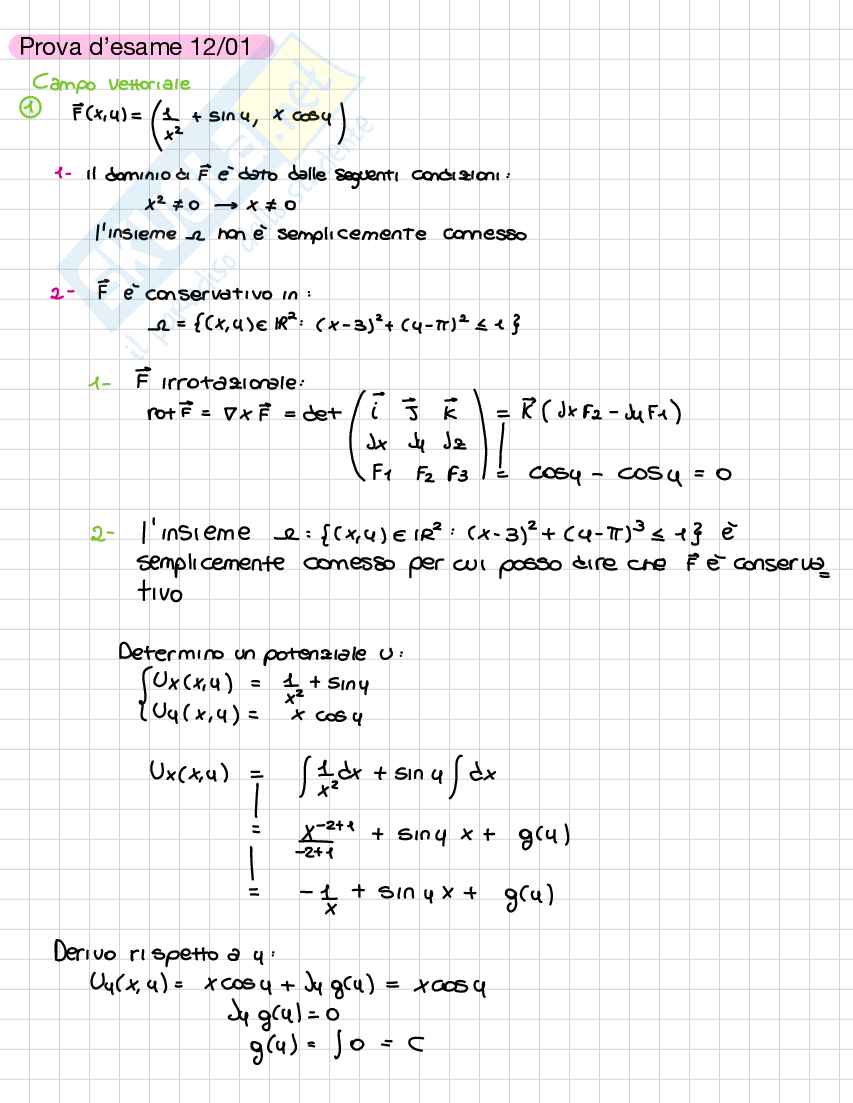 Prova d'esame 12/01
Campo vettoriale
① F⃗(x,y) = (1/x² + sin y, x cos y)
1- Il dominio di F⃗ è dato dalle seguenti condizioni:
x² ≠ 0 → x ≠ 0
l'insieme Ω non è semplicemente connesso
2- F⃗ è conservativo in:
Ω = {(x,y) ∈ ℝ²: (x-3)² + (y-π)² ≤ 1}
1- F⃗ irrotazionale:
rot F⃗ = ∇ x F⃗ = det ( i⃗ j⃗ k⃗ ) = k⃗ (∂x F2 - ∂y F1)
∂x ∂y ∂z
F1 F2 F3 = cos y - cos y = 0
2- l'insieme Ω: {(x,y) ∈ ℝ²: (x-3)² + (y-π)³ ≤ 1} è
semplicemente connesso per cui posso dire che F⃗ è conserva=
tivo
Determino un potenziale U:
{ Ux(x,y) = 1/x² + sin y
{ Uy(x,y) = x cos y
Ux(x,y) = ∫ 1/x² dx + sin y ∫ dx
= x^(-2+1)/(-2+1) + sin y x + g(y)
= -1/x + sin y x + g(y)
Derivo rispetto a y:
Uy(x,y) = x cos y + ∂y g(y) = x cos y
∂y g(y) = 0
g(y) = ∫ 0 = C
SKUOLA.net
il paradiso dello studente